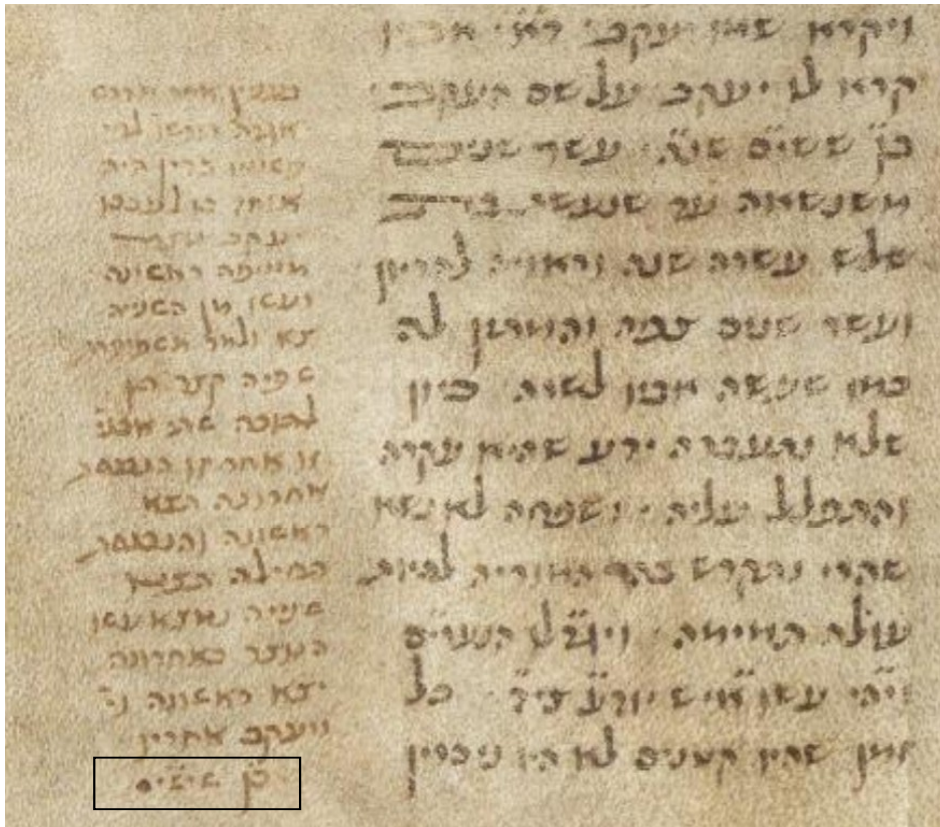 ויקרא שמו יעקב׳ ד״א׳ אביו
קרא לו יעקב על שם העקב׳
בן ששי״ם שנ״ה׳ עשר שנים
משנשאה עד שנעשת בת
שלש עשרה שנה וראויה להריון
ועשר שנים צפה והמתין לה
כמו שעשה אביו לשרה׳ כיון
שלא נתעברה ידע שהיא עקרה
והתפלל עליה׳ ושפחה לא נשא
שהרי נתקדש בהר המוריה להיות
עולה תמימה׳ ויגד״לו הנערי״ם
וי״הי עשו אי״ש יוד״ע צי״ד׳ כל
זמן שהיו קטנים לא היו ניכרין
אגדה דורשו לפי
פשוטו בדין היה
אוחז בו לעכבו
יעקב נוצר
מטיפה ראשונה
ועשו מן השניה
צא ולמד משפופרת
שפיה קצר תן
לתוכה שתי אבני׳
זו אחר זו הנכנסת
אחרונה תצא
ראשונה והנכנסת
תחילה תצא
שנייה נמצא עשו
הנוצר באחרונה
יצא ראשונה
ויעקב אחרון
ב״ן ששי״ם